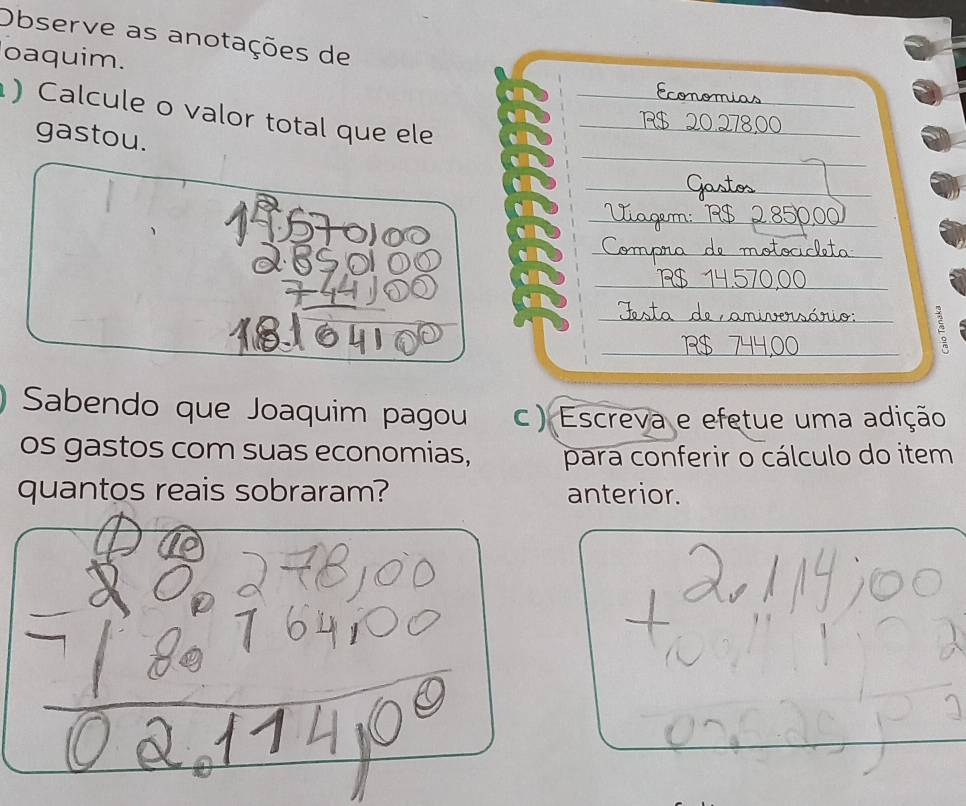 Observe as anotações de
Joaquim.
) Calcule o valor total que ele
gastou.
14.570,00
2.850,00
744,00
18.164,00
Economias
R$ 20.278,00
Gastos
Viagem: R$ 2.850,00
Compra de motocicleta:
R$ 14.570,00
Festa de aniversário:
R$ 744,00
Caio Tanaka
) Sabendo que Joaquim pagou
os gastos com suas economias,
quantos reais sobraram?
1 10
20.278,00
- 18.164,00
02.114,00
c) Escreva e efetue uma adição
para conferir o cálculo do item
anterior.
2.114,00
+